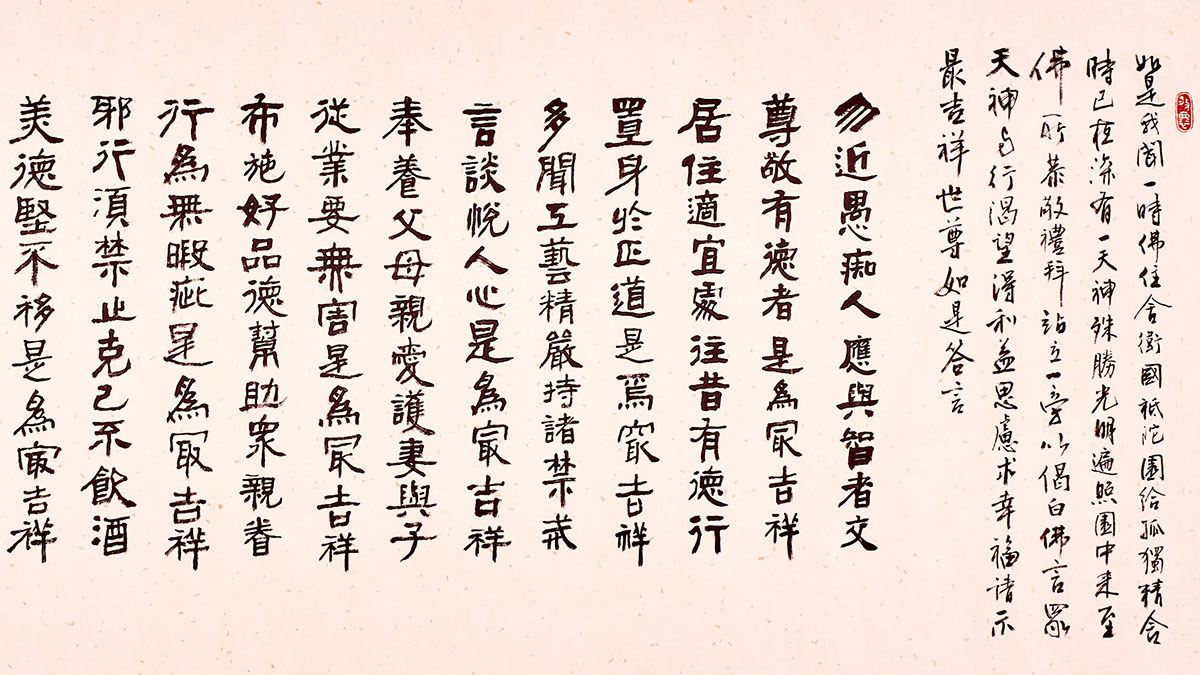 如是我聞一時佛住舍衛國祇陀園給孤獨精舍
時已夜深有一天神殊勝光明遍照園中来至
佛所恭敬禮拜站立一旁以偈白佛言眾
天神与行渴望得利益思慮求幸福請示
最吉祥世尊如是答言
勿近愚痴人應與智者交
尊敬有德者是為最吉祥
居住適宜處往昔有德行
置身於正道是焉最吉祥
多聞工藝精嚴持諸禁戒
言談悅人心是為最吉祥
奉養父母親愛護妻與子
從業要無害是為最吉祥
布施好品德幫助眾親眷
行為無暇疵是為最吉祥
邪行須禁止克己不飲酒
美德堅不移是為最吉祥